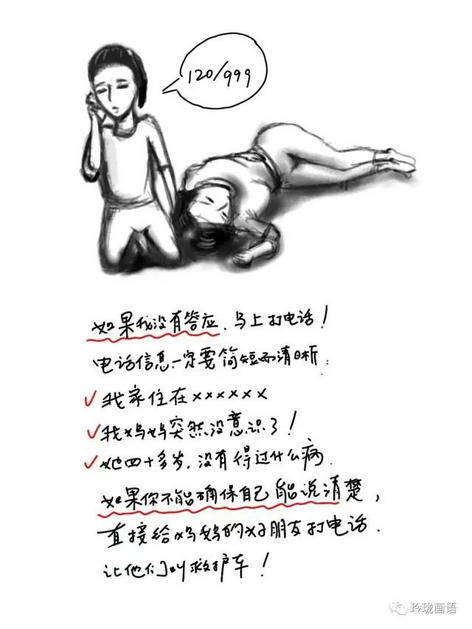 120/999
如果我没有答应,马上打电话!
电话信息一定要简短而清晰:
✓我家住在××××××
✓我妈妈突然没意识了!
✓她四十多岁,没有得过什么病.
如果你不能确保自己能说清楚,
直接给妈妈的好朋友打电话.
让他们叫救护车!
玲珑画语